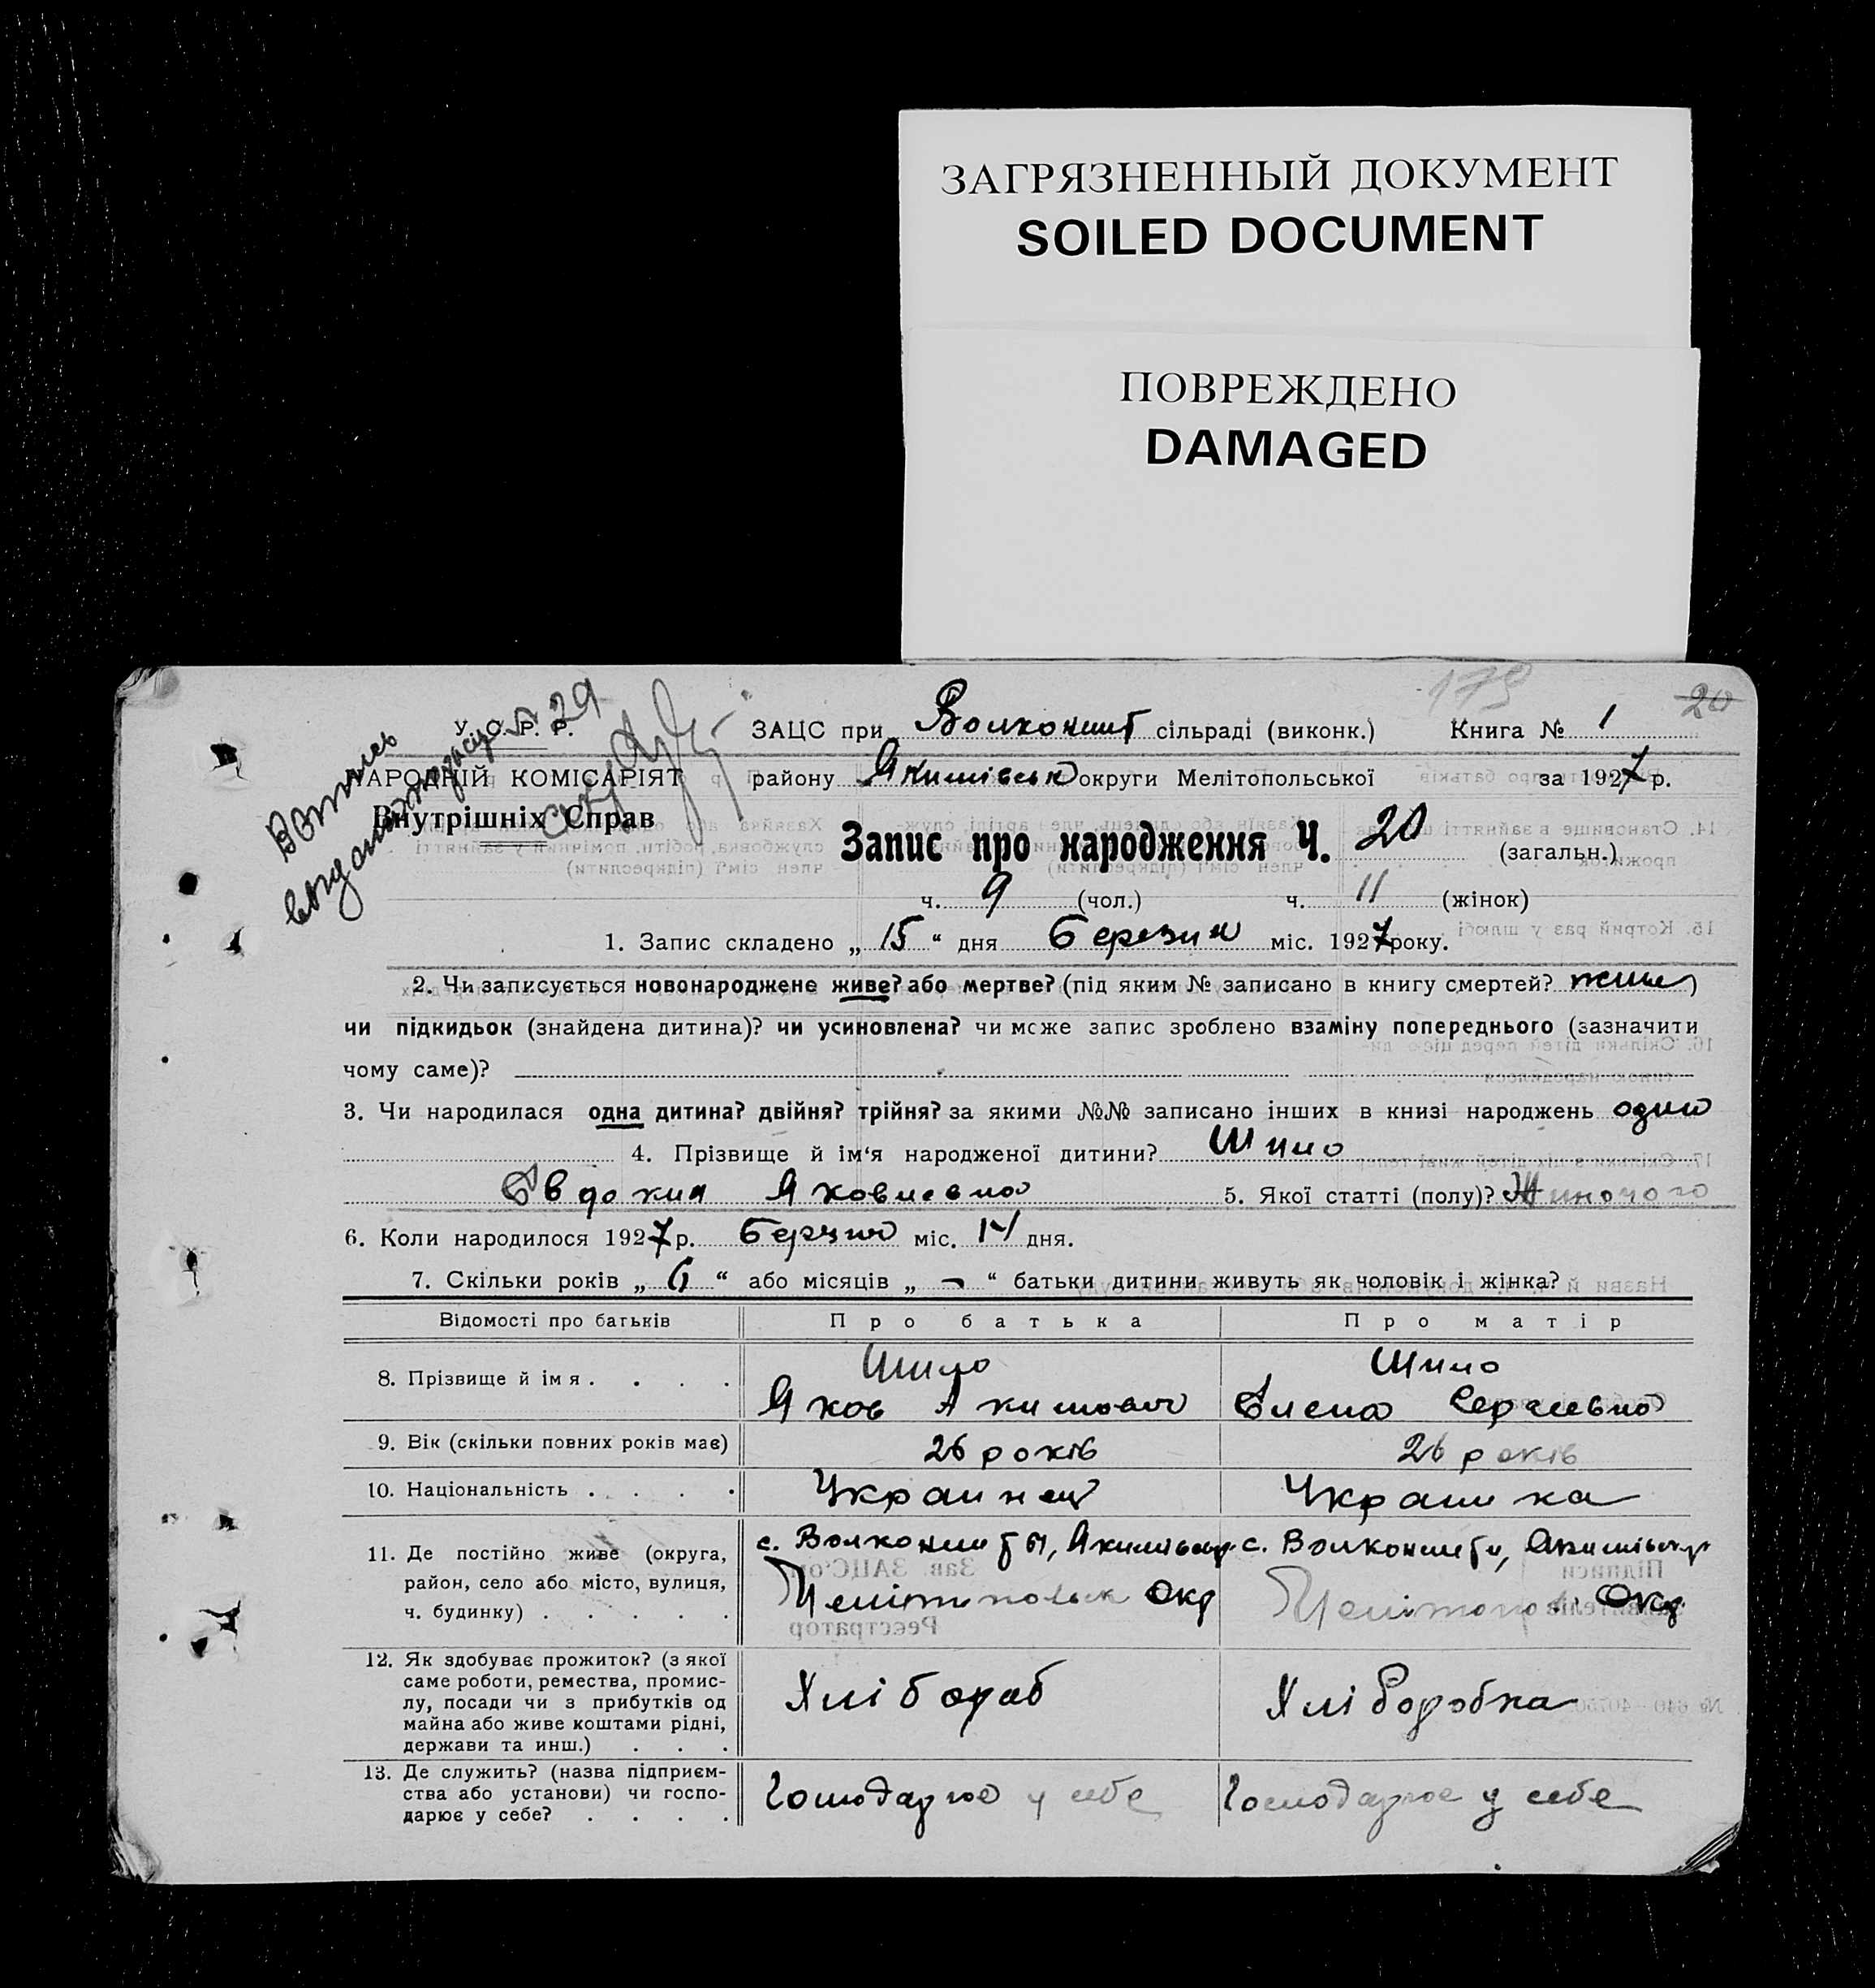 ЗАГРЯЗНЕННЫЙ ДОКУМЕНТ
SOILED DOCUMENT
ПОВРЕЖДЕНО
DAMAGED
179 20
У. С. Р. Р.
АРОДНІЙ КОМІСАРІЯТ
Внутрішніх Справ
ЗАЦС при сільраді (виконк.) Книга № 1
району Якимівськ округи Мелітопольської за 1927 р.
Запис про народження Ч. 20 (загальн.)
ч. 9 (чол.) ч. 11 (жінок)
1. Запис складено „ 15 “ дня Березня міс. 1927 року.
2. Чи записується новонароджене живе? або мертве? (під яким № записано в книгу смертей? живе)
чи підкидьок (знайдена дитина)? чи усиновлена? чи може запис зроблено взаміну попереднього (зазначити
чому саме)?
3. Чи народилася одна дитина? двійня? трійня? за якими №№ записано інших в книзі народжень одна
4. Прізвище й ім‘я народженої дитини? Шило
Євдокия Яковлевна 5. Якої статті (полу)? Жиночого
6. Коли народилося 1927 р. Березня міс. 14 дня.
7. Скільки років „ 6 “ або місяців „ - “ батьки дитини живуть як чоловік і жінка?
Відомості про батьків Про батька Про матір
8. Прізвище й імя . . . . Шило Шило
Яков Акимович Елена Сергиевна
9. Вік (скільки повних років має) 26 років 26 років
10. Національність . . . . Украинец Украинка
11. Де постійно живе (округа,
район, село або місто, вулиця,
ч. будинку) . . . . .
Мелітопольск Окр Окр
12. Як здобуває прожиток? (з якої
саме роботи, ремества, промис-
лу, посади чи з прибутків од
майна або живе коштами рідні,
держави та инш.) . . .
Хлібороб Хліборобка
13. Де служить? (назва підприєм-
ства або установи) чи госпо-
дарює у себе? . . . .
Господарює у себе Господарює у себе